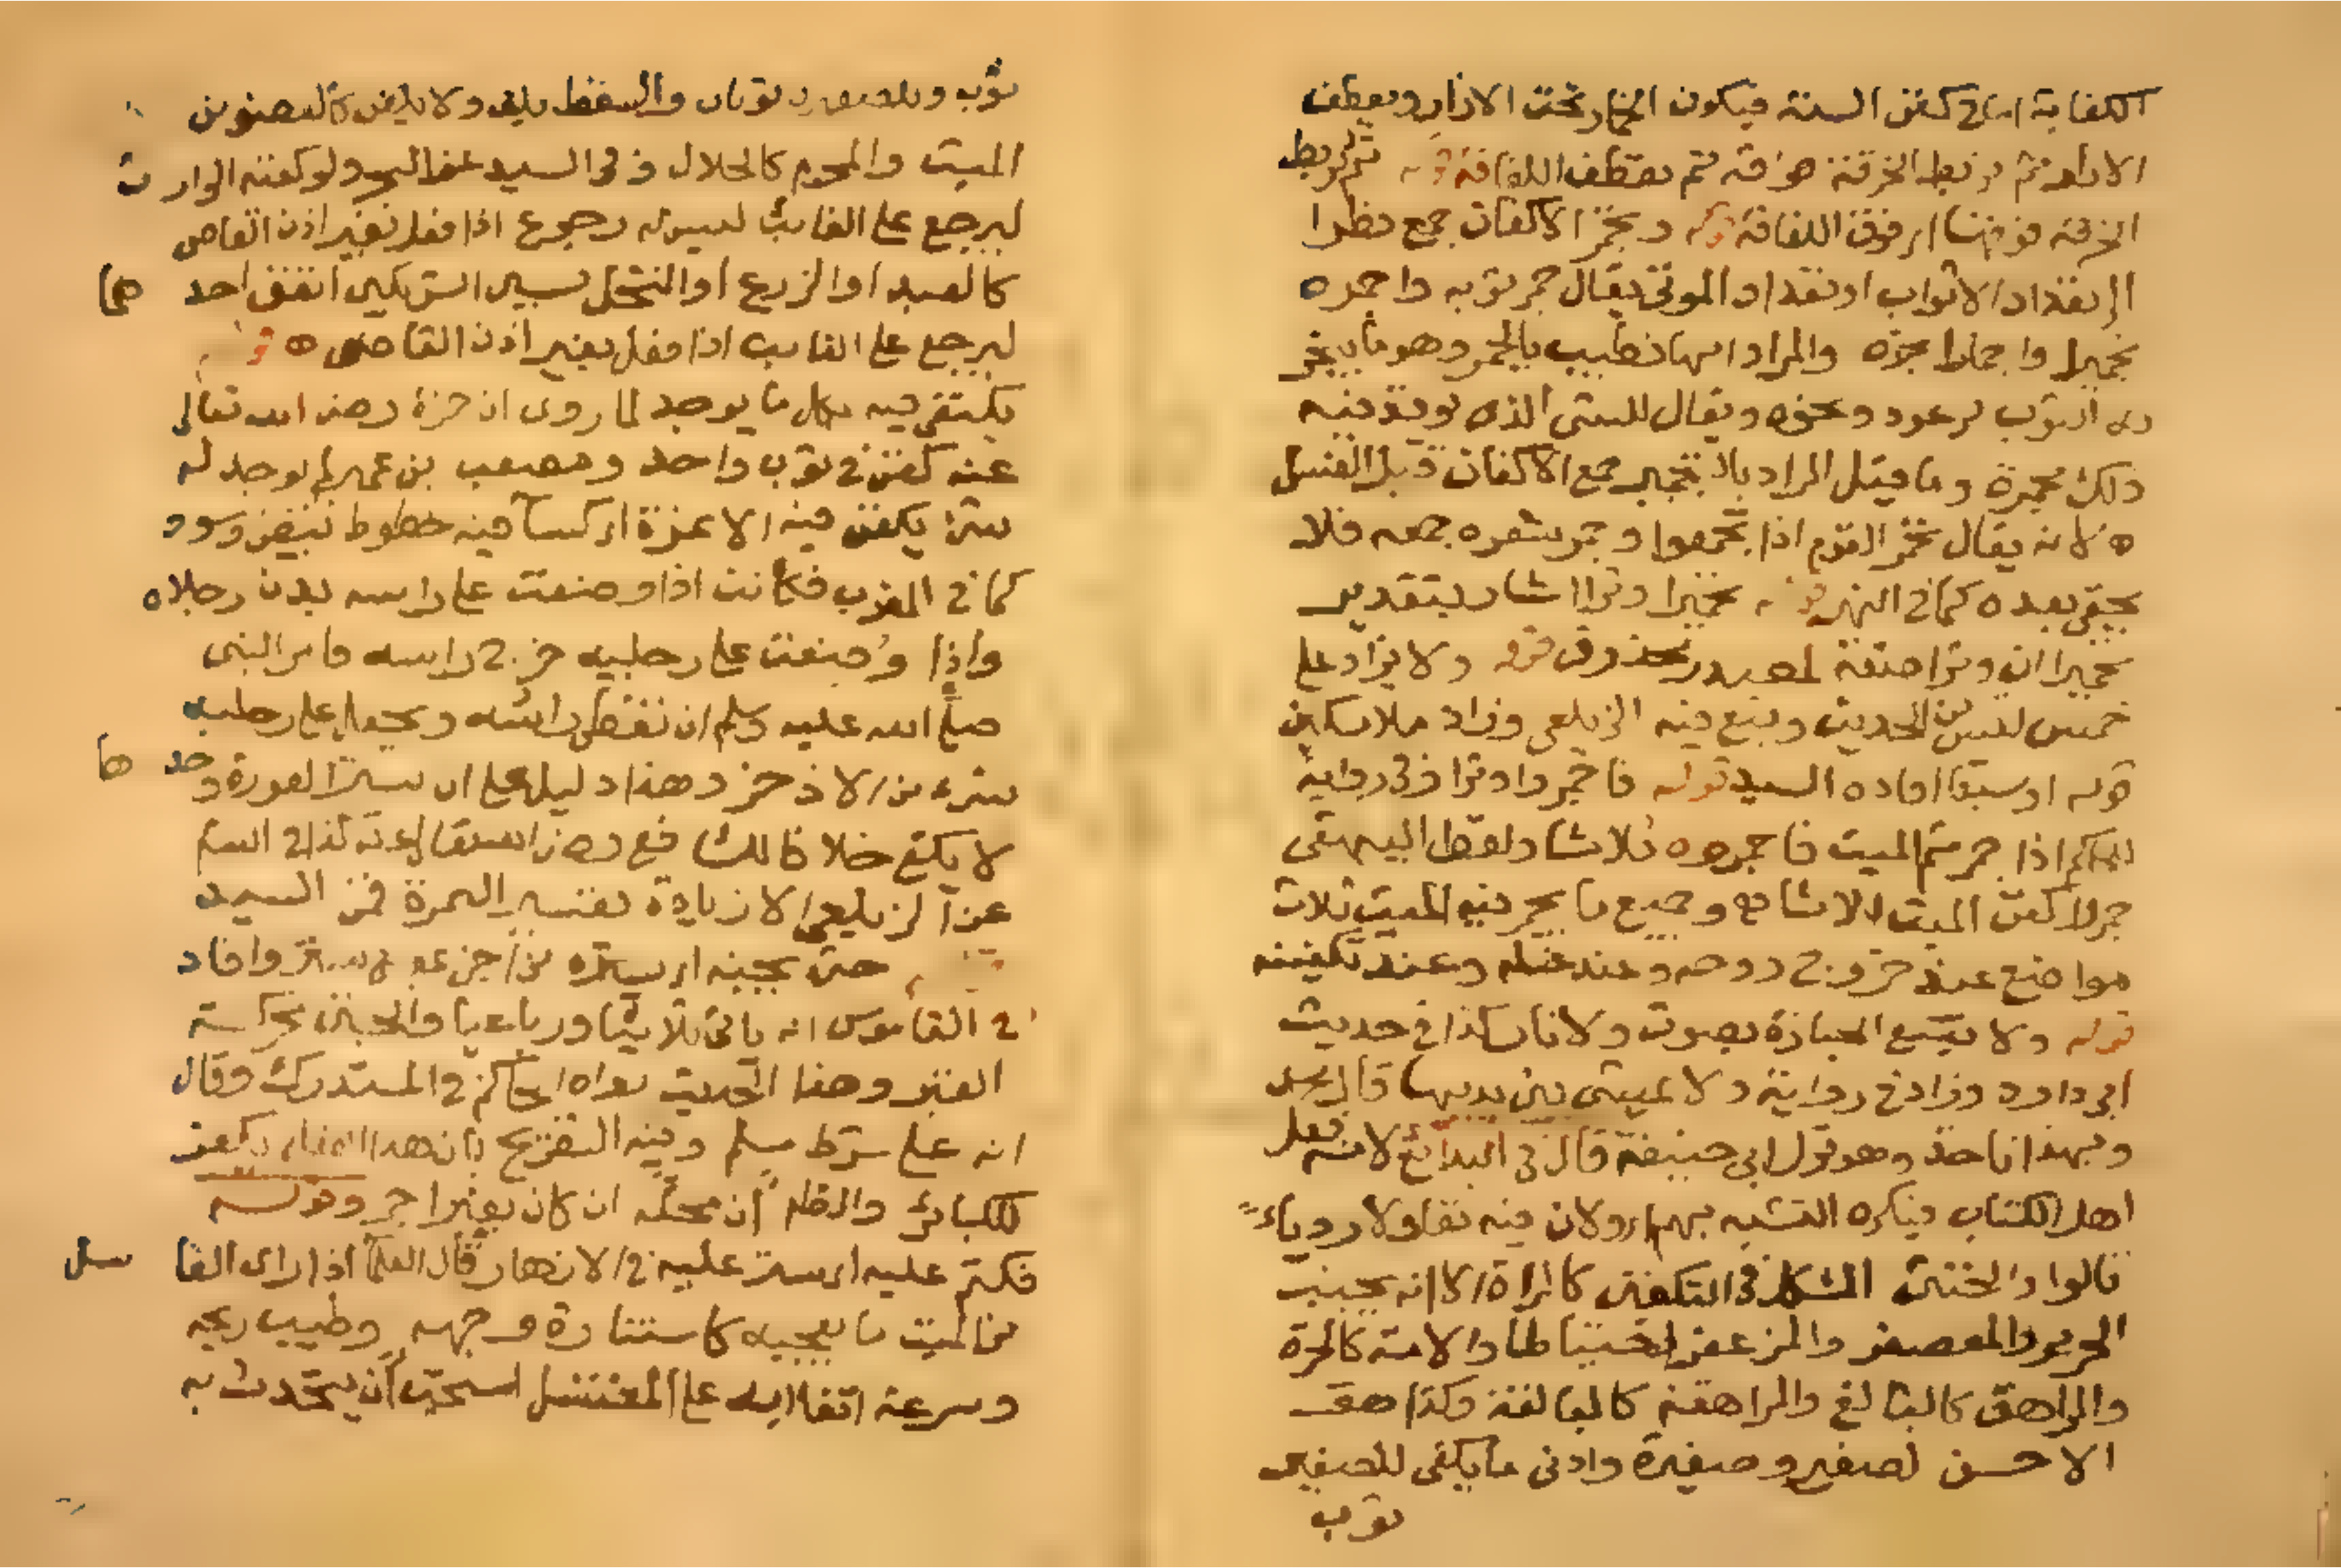 الكفاية اما في كفن السنة فيكون الخمار تحت الازار ويعطف
الازار ثم تربط الخرقة فوقه ثم تعطف اللفافة قوله ثم تربط
الخرقة فوقها اي فوق اللفافة قوله وتجمر الاكفان جمع نظرا
الى تعداد الاثواب او تعداد الموتى يقال جمر ثوبه واجمره
تجميرا واجمارا بخره والمراد انها تطيب بالجمر وهو ما يبخر
به الثوب من عود ونحوه ويقال للشئ الذي توقد فيه
ذلك مجمرة وما قيل المراد بالتجمير جمع الاكفان قبل الغسل
لانه يقال تجمر القوم اذا تجمعوا وجمر شعره جمعه فلا
يخفى بعده كما في النهر قوله تجميرا وترا اشار بتقدير
تجميرا ان وترا صفة لمصدر محذوف قوله ولا يزاد على
خمس ليس في الحديث وتبع فيه الزيلعي وزاد ملا مسكين
قوله او سبعا افاده السيد قوله فاجمروا وترا وفي رواية
للحاكم اذا جمرتم الميت فاجمروه ثلاثا ولفظ البيهقي
جمروا كفن الميت ثلاثا وجميع ما يجمر فيه الميت ثلاث
مواضع عند خروج روحه وعند غسله وعند تكفينه
قوله ولا تتبع الجنازة بصوت ولا نار كذا في حديث
ابي داود وزاد في رواية ولا يمشى بين يديها قال محمد
وبهذا ناخذ وهو قول ابي حنيفة قال في البدائع لانه فعل
اهل الكتاب فيكره التشبه بهم ولان فيه تفاولا رديا
قالوا والخنثى المشكل في التكفين كالمراة الا انه يجنب
الحرير والمعصفر والمزعفر احتياطا والامة كالحرة
والمراهق كالبالغ والمراهقة كالبالغة وكذا هو
الاحسن لصغير وصغيرة وادنى ما يكفي للصغير
ثوب
ثوب وللصغيرة ثوبان والسقط يلف ولا يكفن كالعضو من
الميت والمحرم كالحلال وفي السيد عن البحر ولو كفنه الوارث
ليرجع على الغائب ليس له رجوع اذا فعل بغير اذن القاضي
كالعبد او الزرع او النخل بين الشريكين انفق احدهما
ليرجع على الغائب اذا فعل بغير اذن القاضي قوله
يكتفى فيه بكل ما يوجد لما روى ان حمزة رضى الله تعالى
عنه كفن في ثوب واحد ومصعب بن عمير لم يوجد له
شئ يكفن فيه الا نمرة اي كساء فيه خطوط بيض وسود
كما في المغرب فكانت اذا وضعت على راسه بدت رجلاه
واذا وضعت على رجليه خرج راسه فامر النبي
صلى الله عليه وسلم ان تغطى راسه ويجعل على رجليه
شئ من الاذخر وهذا دليل على ان ستر العورة وحدها
لا يكفي خلافا للشافعي رضى الله تعالى عنه كذا في السيد
عن الزيلعي الا زيادة تفسير النمرة فمن السيد
قوله حتى يجنه اي يستره من اجن ستر وافاد
في القاموس انه ياتي ثلاثيا ورباعيا والجنن محركة
القبر وهذا الحديث رواه الحاكم في المستدرك وقال
انه على شرط مسلم وفيه التصريح بان هذا الفعل يكفر
الكبائر والظاهر ان محله ان كان بغير اجر وقوله
فكتم عليه اي ستر عليه في الازهار قال العلماء اذا راى الغاسل
من الميت ما يعجبه كاستنارة وجهه وطيب ريحه
وسرعة انقلابه على المغتسل استحب ان يتحدث به